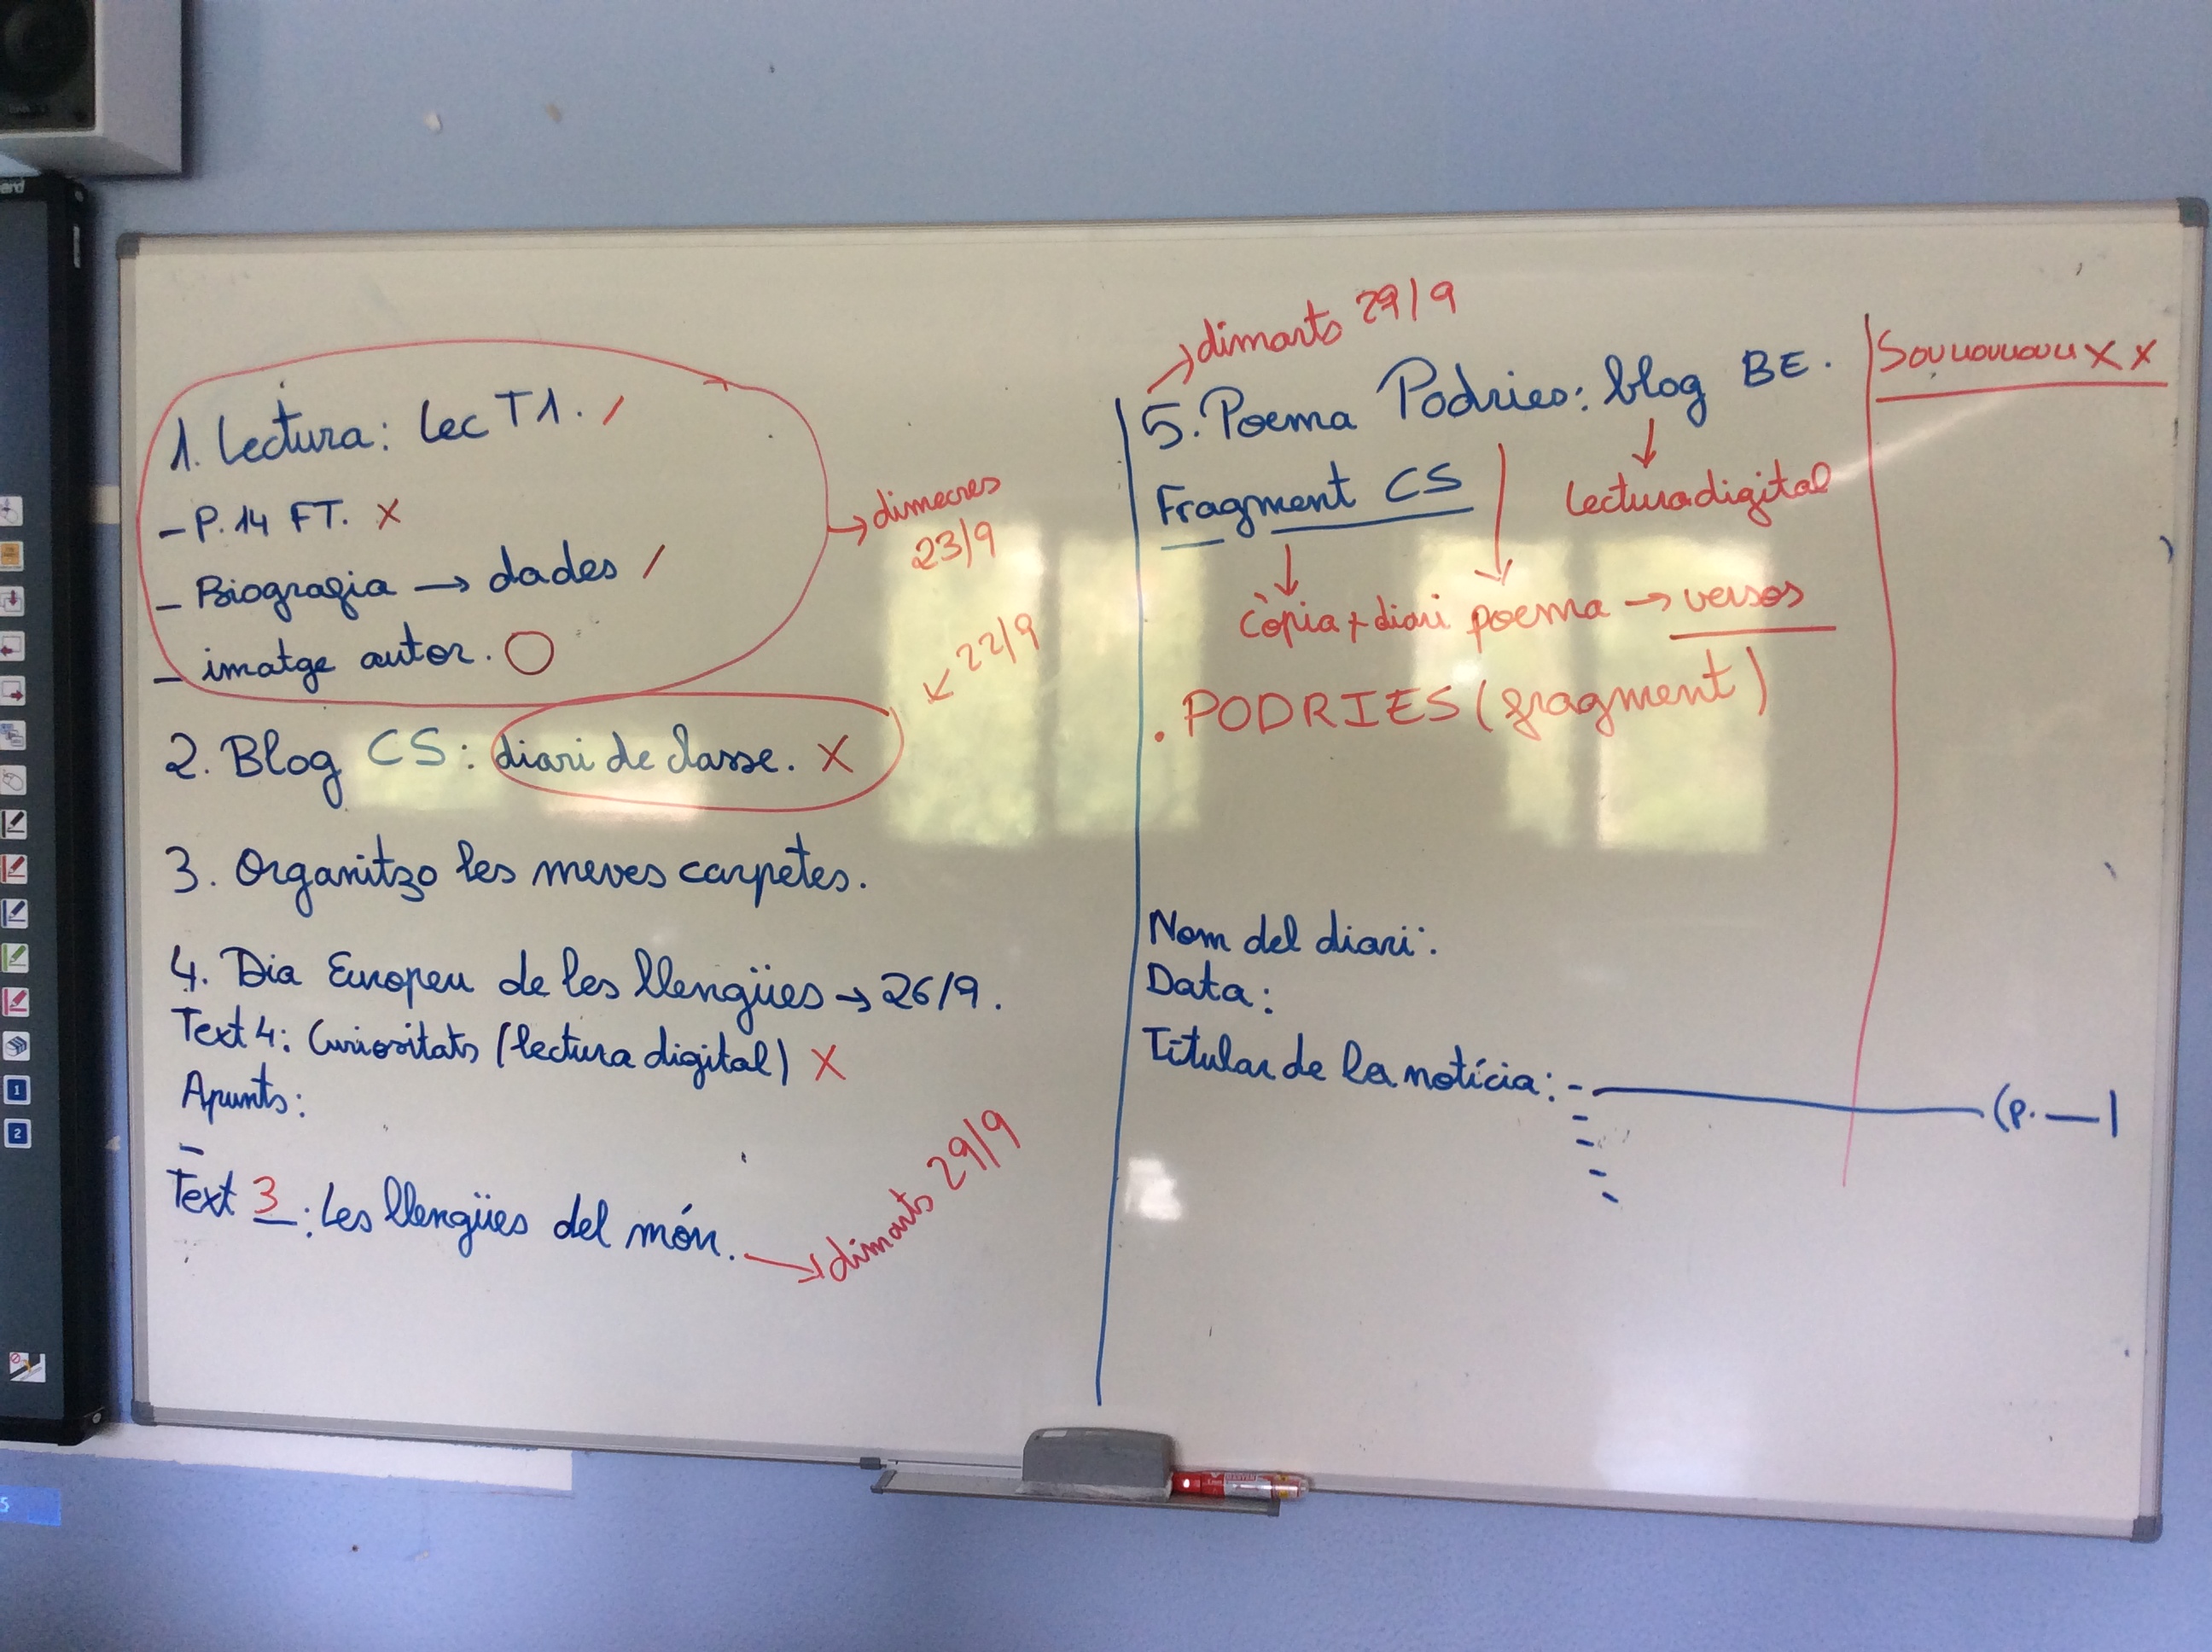 1. Lectura: Lec T1. /
- P. 14 FT. X
- Biografia → dades /
- imatge autor. O
→ dimecres
23/9
2. Blog CS: diari de classe. X
← 22/9
3. Organitzo les meves carpetes.
4. Dia Europeu de les llengües → 26/9.
Text 4: Curiositats (lectura digital) X
Apunts:
-
Text 3: Les llengües del món.
→ dimarts 29/9
→ dimarts 29/9
5. Poema Podries: blog BE.
Fragment CS
lectura digital
còpia + diari poema → versos
. PODRIES (fragment)
Nom del diari:
Data:
Titular de la notícia: - (p. __)
-
-
-
-
X X
1
2
5